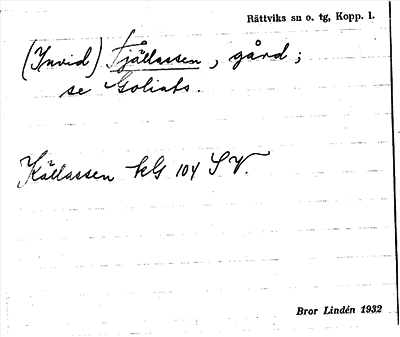 Rättviks sn o. tg, Kopp. l.
(Invid) Fjällassen, gård;
se Goliats.
Källassen kG 104 SV.
Bror Lindén 1932